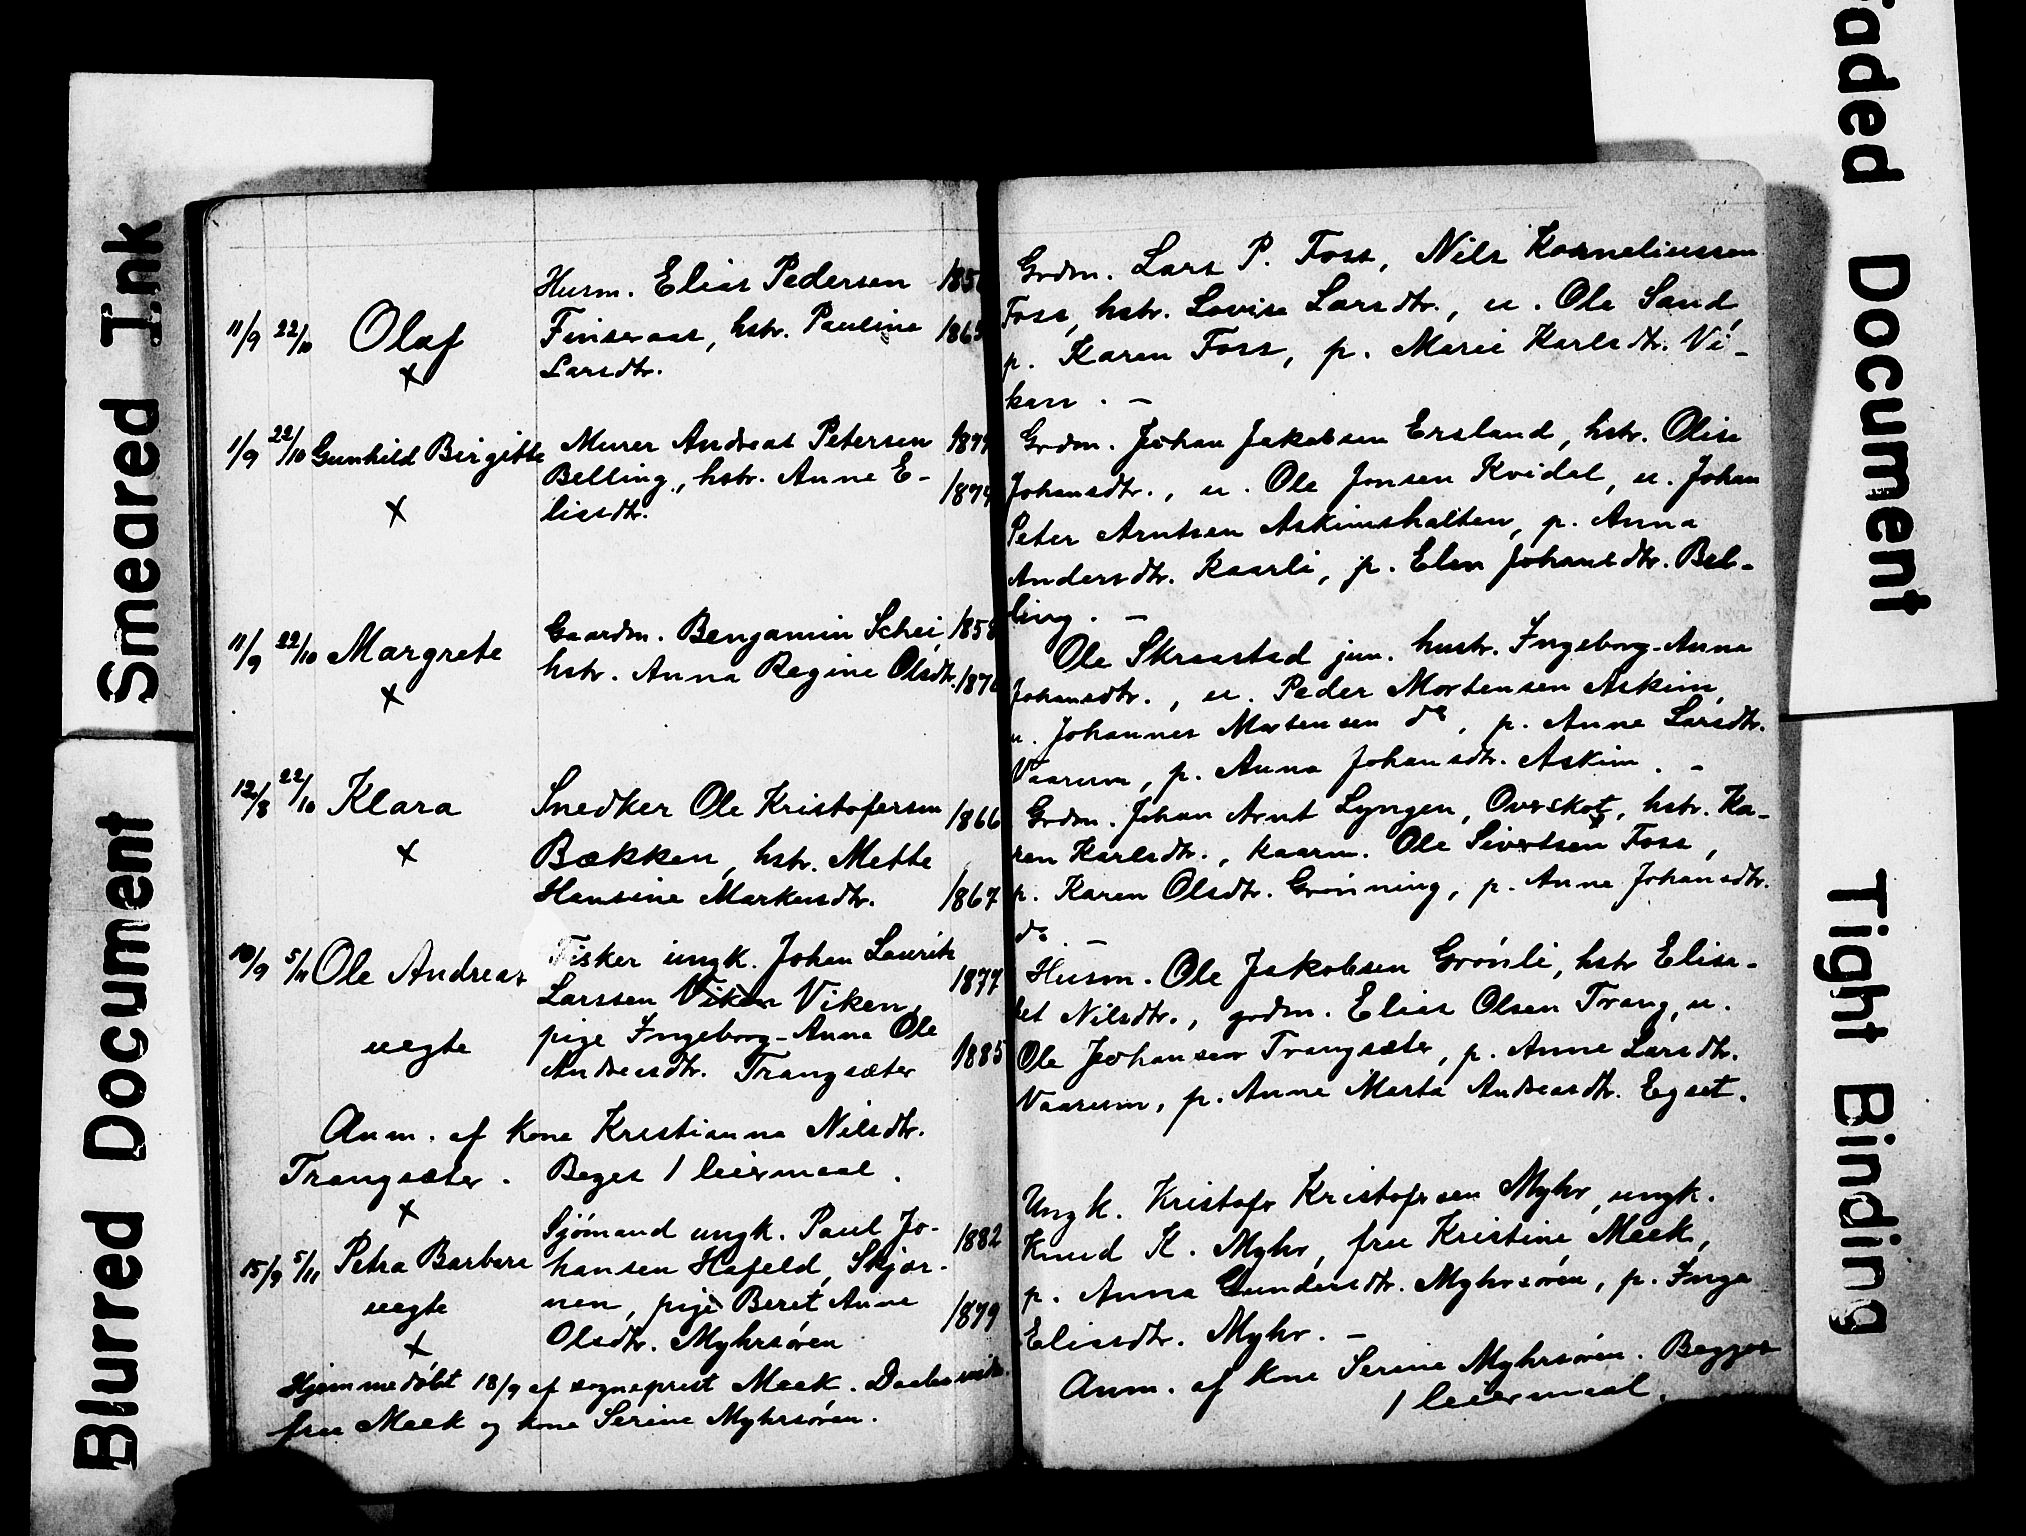 Smeared Ink
Blurred Document
Faded Document
Tight Binding
Husm. Elias Pedersen
11/9 22/10 Olaf Finseraas, hstr. Pauline
Larsdtr.
x
1/9 22/10 Gunhild Birgitte Murer Andreas Petersen
Belling, hstr. Anne E-
x lisdtr.
Gaardm. Benjamin Schei, 1858
11/9 22/10 Margrete hstr. Anna Regine Olsdtr.
x
12/8 22/10 Klara Snedker Ole Kristofersen 1866
x Bækken, hstr. Mette
Hansine Markusdtr. 1867
10/9 5/11 Ole Andreas Fisker ungk. Johan Laurits
Larssen Viken Viken, 1877
uegte pige Ingeborg-Anna Ole
Andreasdtr. Trangsæter 1885
Anm. af kone Kristianna Nilsdtr.
Trangsæter. Beges 1 leiermaal.
x
Sjømand ungk. Paul Jo- 1882
15/9 5/11 Petra Barbara hansen Hafeld, Skjør-
uegte nen, pige Beret Anne 1879
x Olsdtr. Myhrsøren
Hjemmedøbt 18/9 af sogneprest Meek. Daabsvidn.
fru Meek og kone Serine Myhrsøren.
Grdm. Lars P. Foss, Nils Korneliussen
Foss, hstr. Lovise Larsdtr., u. Ole Sand,
p. Karen Foss, p. Marie Karlsdtr. Vi-
kan. -
Grdm. Johan Jakobsen Ersland, hstr. Olise
Johansdtr., u. Ole Jonsen Kvidal, u. Johan
Peter Arntsen Askimshalten, p. Anna
Andersdtr. Kaarli, p. Elen Johansdtr. Bel-
ling. -
Ole Skraastad jun. hustr. Ingeborg-Anna
Johansdtr., u. Peder Mortensen Askim,
u. Johannes Mortensen do, p. Anne Larsdtr.
Vaarum, p. Anna Johansdtr. Askim. -
Grdm. Johan Arnt Lyngen, Overskot, hstr. Ka-
ren Karlsdtr., kaarm. Ole Sivertsen Foss,
p. Karen Olsdtr. Grønning, p. Anne Johansdtr.
do -
Husm. Ole Jakobsen Grønli, hstr Elisa-
bet Nilsdtr., grdm. Elias Olsen Trang, u.
Ole Johansen Trangsæter, p. Anne Larsdtr.
Vaarum, p. Anne Marta Andreasdtr. Egset.
Ungk. Kristofr Kristofersen Myhr, ungk.
Knud K. Myhr, fru Kristine Meek,
p. Anna Gundersdtr. Myhrsøren, p. Inga
Elisdtr. Myhr. -
Anm. af kone Serine Myhrsøren. Begges
1 leiermaal.